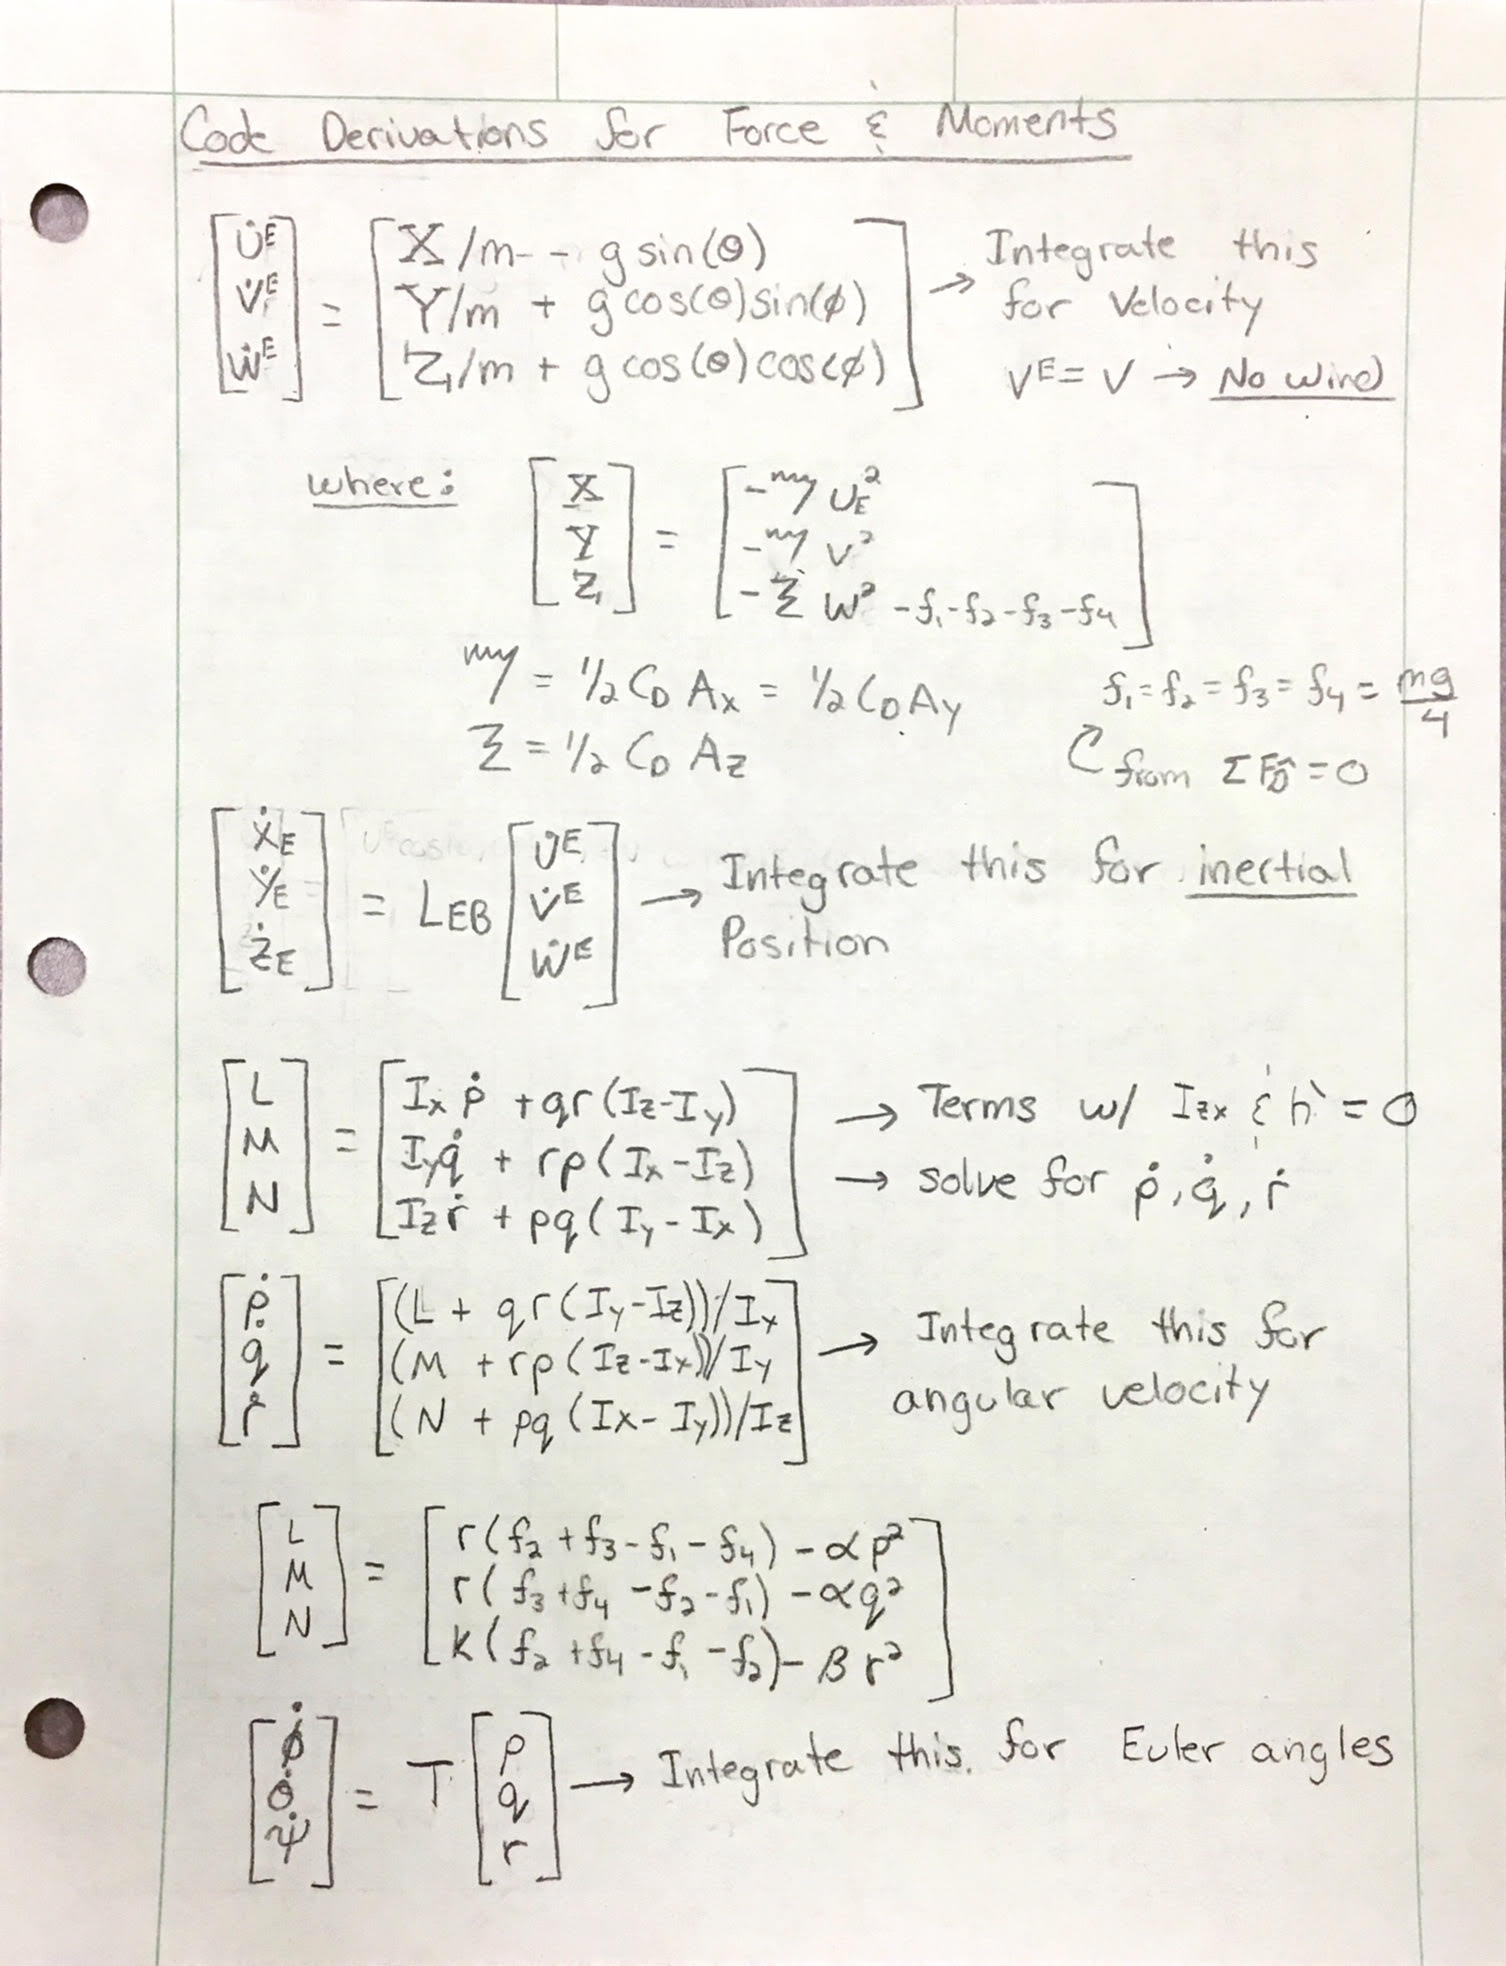 Code Derivations for Force & Moments
[U̇ᴱ V̇ᴱ Ẇᴱ] = [X/m - g sin(θ)
Y/m + g cos(θ) sin(ϕ)
Z/m + g cos(θ) cos(ϕ)] → Integrate this
for Velocity
Vᴱ = V → No wind
where: [X Y Z] = [-η U_E²
-η V²
-ξ W² - f₁ - f₂ - f₃ - f₄]
η = 1/2 C_D A_x = 1/2 C_D A_y
f₁ = f₂ = f₃ = f₄ = mg/4
ξ = 1/2 C_D A_z
from ΣF_D = 0
[ẋ_E ẏ_E ż_E] = L_EB [U̇ᴱ V̇ᴱ Ẇᴱ] → Integrate this for inertial
Position
[L M N] = [I_x ṗ + qr (I_z - I_y)
I_y q̇ + rp (I_x - I_z)
I_z ṙ + pq (I_y - I_x)] → Terms w/ I_zx & h' = 0
→ solve for ṗ, q̇, ṙ
[ṗ q̇ ṙ] = [(L + qr (I_y - I_z))/I_x
(M + rp (I_z - I_x))/I_y
(N + pq (I_x - I_y))/I_z] → Integrate this for
angular velocity
[L M N] = [r (f₂ + f₃ - f₁ - f₄) - αp²
r (f₃ + f₄ - f₂ - f₁) - αq²
k (f₂ + f₄ - f₁ - f₂) - βr²]
[ϕ̇ θ̇ ψ̇] = T [p q r] → Integrate this for Euler angles